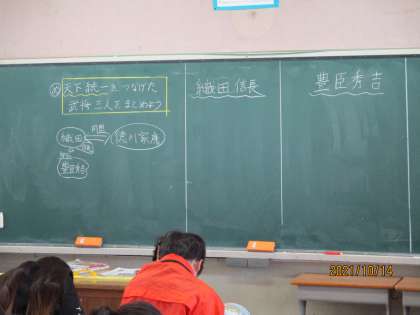 め 天下統一をつなげた
武将三人をまとめよう
織田
同盟
徳川家康
豊臣秀吉
織田信長
豊臣秀吉
2021/10/14